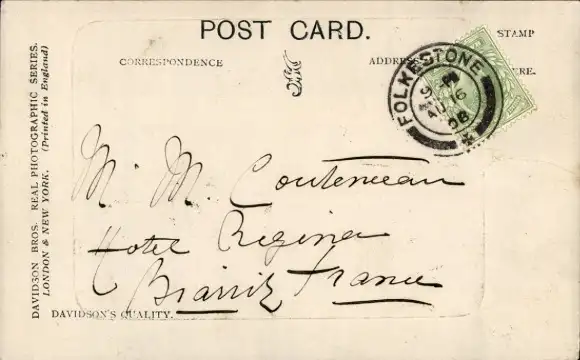 POST CARD.
CORRESPONDENCE
ADDRESS
STAMP
RE.
FOLKESTONE
16
08
M. M. Couteneau
Hotel Regina
Biarritz France
DAVIDSON BROS. REAL PHOTOGRAPHIC SERIES.
LONDON & NEW YORK. (Printed in England)
DAVIDSON'S QUALITY.